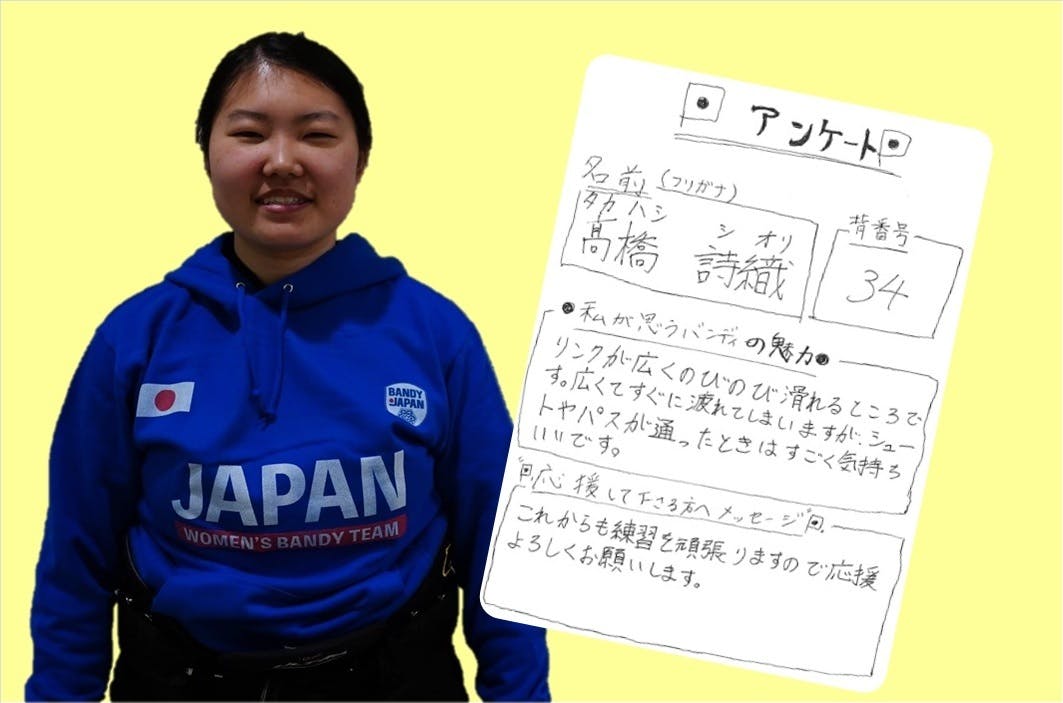 BANDY
JAPAN
JAPAN
WOMEN'S BANDY TEAM
アンケート
名前 (フリガナ)
タカハシ シオリ
髙橋 詩織
背番号
34
私が思うバンディの魅力
リンクが広くのびのび滑れるところで
す。広くてすぐに疲れてしまいますが、シュー
トやパスが通ったときはすごく気持ち
いいです。
応援して下さる方へメッセージ
これからも練習を頑張りますので応援
よろしくお願いします。